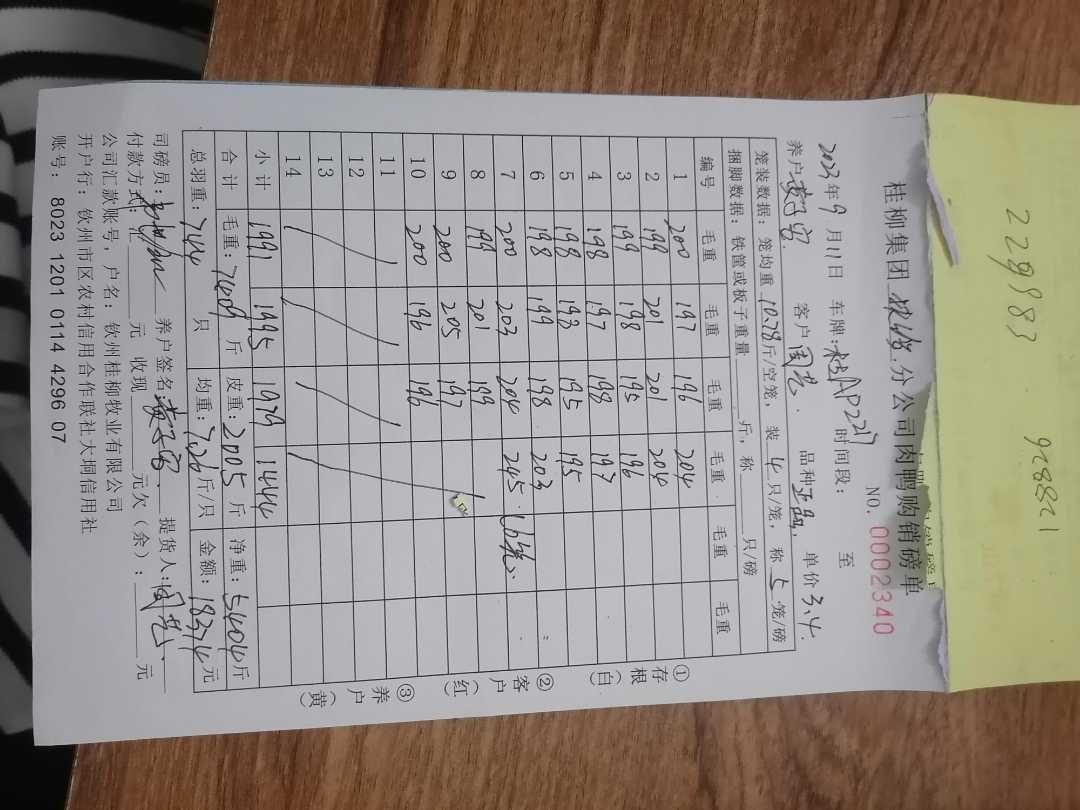 229983
928821
桂柳集团 分公司肉鸭购销磅单
NO. 0002340
2023年9月11日 车牌：桂AP221 时间段： 至
养户 黄子安 客户 周芸 品种 单价 3.4
笼装数据：笼均重 10.28 斤/空笼，装 4 只/笼，称 5 笼/磅
捆脚数据：铁筐或板子重量 斤，称 只/磅
编号 毛重 毛重 毛重 毛重 毛重 毛重
1 200 197 196 204
2 199 201 201 204
3 199 198 195 196
4 198 197 198 197
5 198 193 195 195
6 198 199 198 203
7 200 203 204 245
8 199 201 199
9 200 205 197
10 200 196 196
11
12
13
14
小计 1991 1995 1979 1444
合计 毛重：7409 斤 皮重：2005 斤 净重：5404 斤
总羽重：744 只 均重：7.26 斤/只 金额：18374 元
司磅员： 养户签名：黄子安 提货人：周芸
付款方式：汇 元 收现 元欠（余）： 元
公司汇款账号，户名：钦州桂柳牧业有限公司
开户行：钦州市区农村信用合作联社大垌信用社
账号：8023 1201 0114 4296 07
①存根（白）
②客户（红）
③养户（黄）